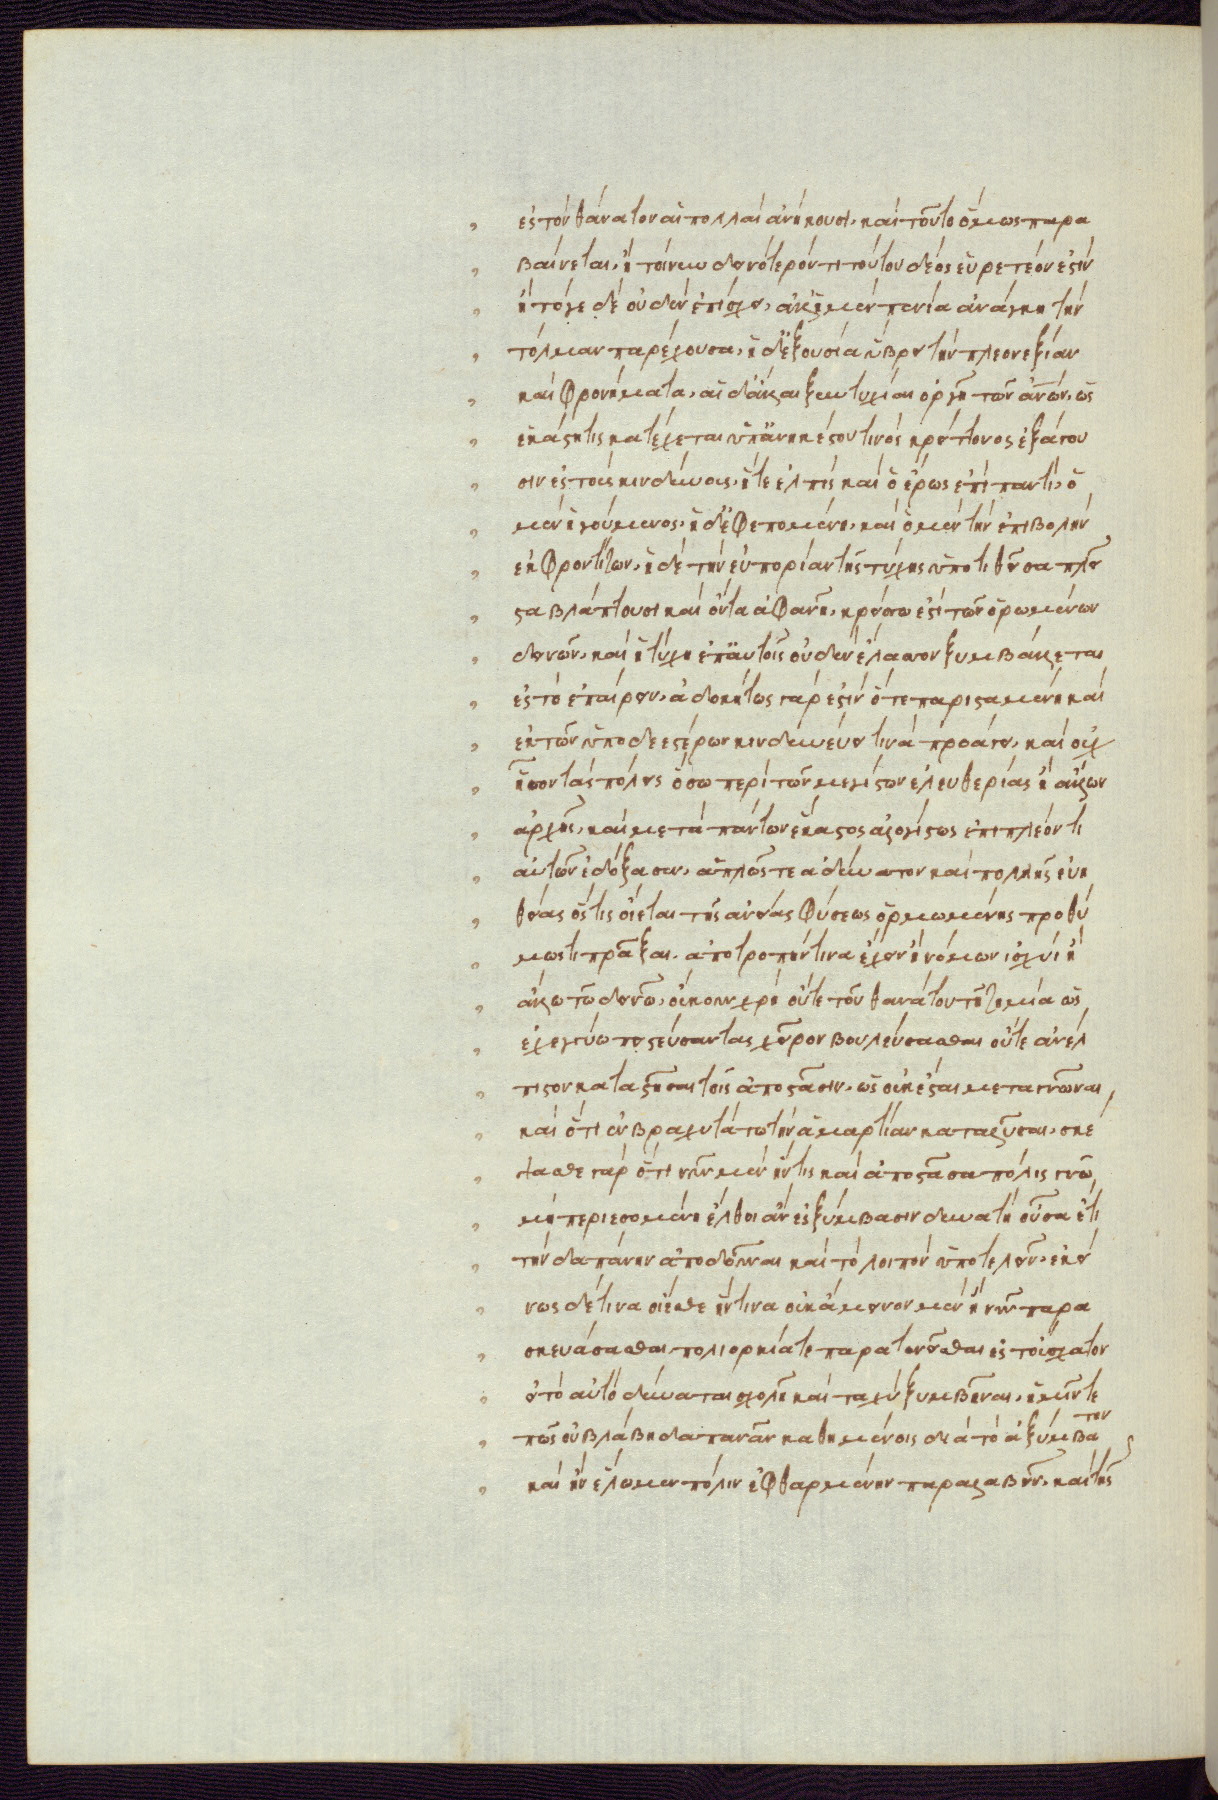 ἐς τὸν θάνατον αἱ πολλαὶ ἀνήκουσι, καὶ τοῦτο ὅμως παρα
βαίνεται, ἢ τοίνυν δεινότερόν τι τούτου δέος εὑρετέον ἐστὶν
ἢ τόγε δὲ οὐδὲν ἐπίσχει, ἀλλ' ἡ μὲν πενία ἀνάγκη τὴν
τόλμαν παρέχουσα, ἡ δ' ἐξουσία ὕβρει τὴν πλεονεξίαν
καὶ φρονήματα, αἱ δ' ἄλλαι ξυντυχίαι ὀργῆ τῶν ἀνων, ὡς
ἑκάστη τις κατέχεται ὑπ' ἀνηκέστου τινὸς κρείττονος ἐξάγου
σιν ἐς τοὺς κινδύνους, ἥτε ἐλπὶς καὶ ὁ ἔρως ἐπὶ παντὶ, ὁ
μὲν ἡγούμενος, ἡ δ' ἐφεπομένη, καὶ ὁ μὲν τὴν ἐπιβολὴν
ἐκφροντίζων, ἡ δὲ τὴν εὐπορίαν τῆς τύχης ὑποτιθεῖσα πλεῖ
στα βλάπτουσι καὶ ὄντα ἀφανῆ, κρείσσω ἐστὶ τῶν ὁρωμένων
δεινῶν, καὶ ἡ τύχη ἐπ' αὐτοῖς οὐδὲν ἔλασσον ξυμβάλλεται
ἐς τὸ ἐπαίρειν, ἀδοκήτως γάρ ἐστιν ὅτε παρισταμένη καὶ
ἐκ τῶν ὑποδεεστέρων κινδυνεύειν τινὰ προάγει, καὶ οὐχ
ἧσσον τὰς πόλεις ὅσω περὶ τῶν μεγίστων ἐλευθερίας ἢ ἄλλων
ἀρχῆς, καὶ μετὰ πάντων ἕκαστος ἀλογίστως ἐπιπλέον τι
αὑτῶν ἐδόξασεν, ἁπλῶς τε ἀδύνατον καὶ πολλῆς εὐη
θείας ὅστις οἴεται τῆς ἀνείας φύσεως ὁρμωμένης προθύ
μως τι πρᾶξαι, ἀποτροπήν τινα ἔχειν ἢ νόμων ἰσχύι ἢ
ἄλλω τῶ δεινῶ, οὔκουν χρὴ οὔτε τοῦ θανάτου τῆ ζημία ὡς
ἐχεγγύω πιστεύσαντας χεῖρον βουλεύσασθαι οὔτε ἀνέλ
πιστον καταστῆσαι τοῖς ἀποστᾶσιν, ὡς οὐκ ἔσται μεταγνῶναι,
καὶ ὅτι ἐν βραχυτάτω τὴν ἁμαρτίαν καταλῦσαι, σκέ
ψασθε γὰρ ὅτι νῦν μὲν ἤν τις καὶ ἀποστᾶσα πόλις γνῶ,
μὴ περιεσομένη ἔλθοι ἂν ἐς ξύμβασιν δυνατὴ οὖσα ἔτι
τὴν δαπάνην ἀποδοῦναι καὶ τὸ λοιπὸν ὑποτελεῖν, ἐκεί
νως δὲ τίνα οἴεσθε ἥντινα οὐκ ἄμεινον μὲν ἢ νῦν παρα
σκευάσασθαι, πολιορκία τε παρατενεῖσθαι ἐς τοὔσχατον
εἰ τὸ αὐτὸ δύναται σχολῆ καὶ ταχὺ ξυμβῆναι, ἡμῖν τε
πῶς οὐ βλάβη δαπανᾶν καθημένοις διὰ τὸ ἀξύμβατον
καὶ ἢν ἕλωμεν πόλιν ἐφθαρμένην παραλαβεῖν, καὶ τῆς